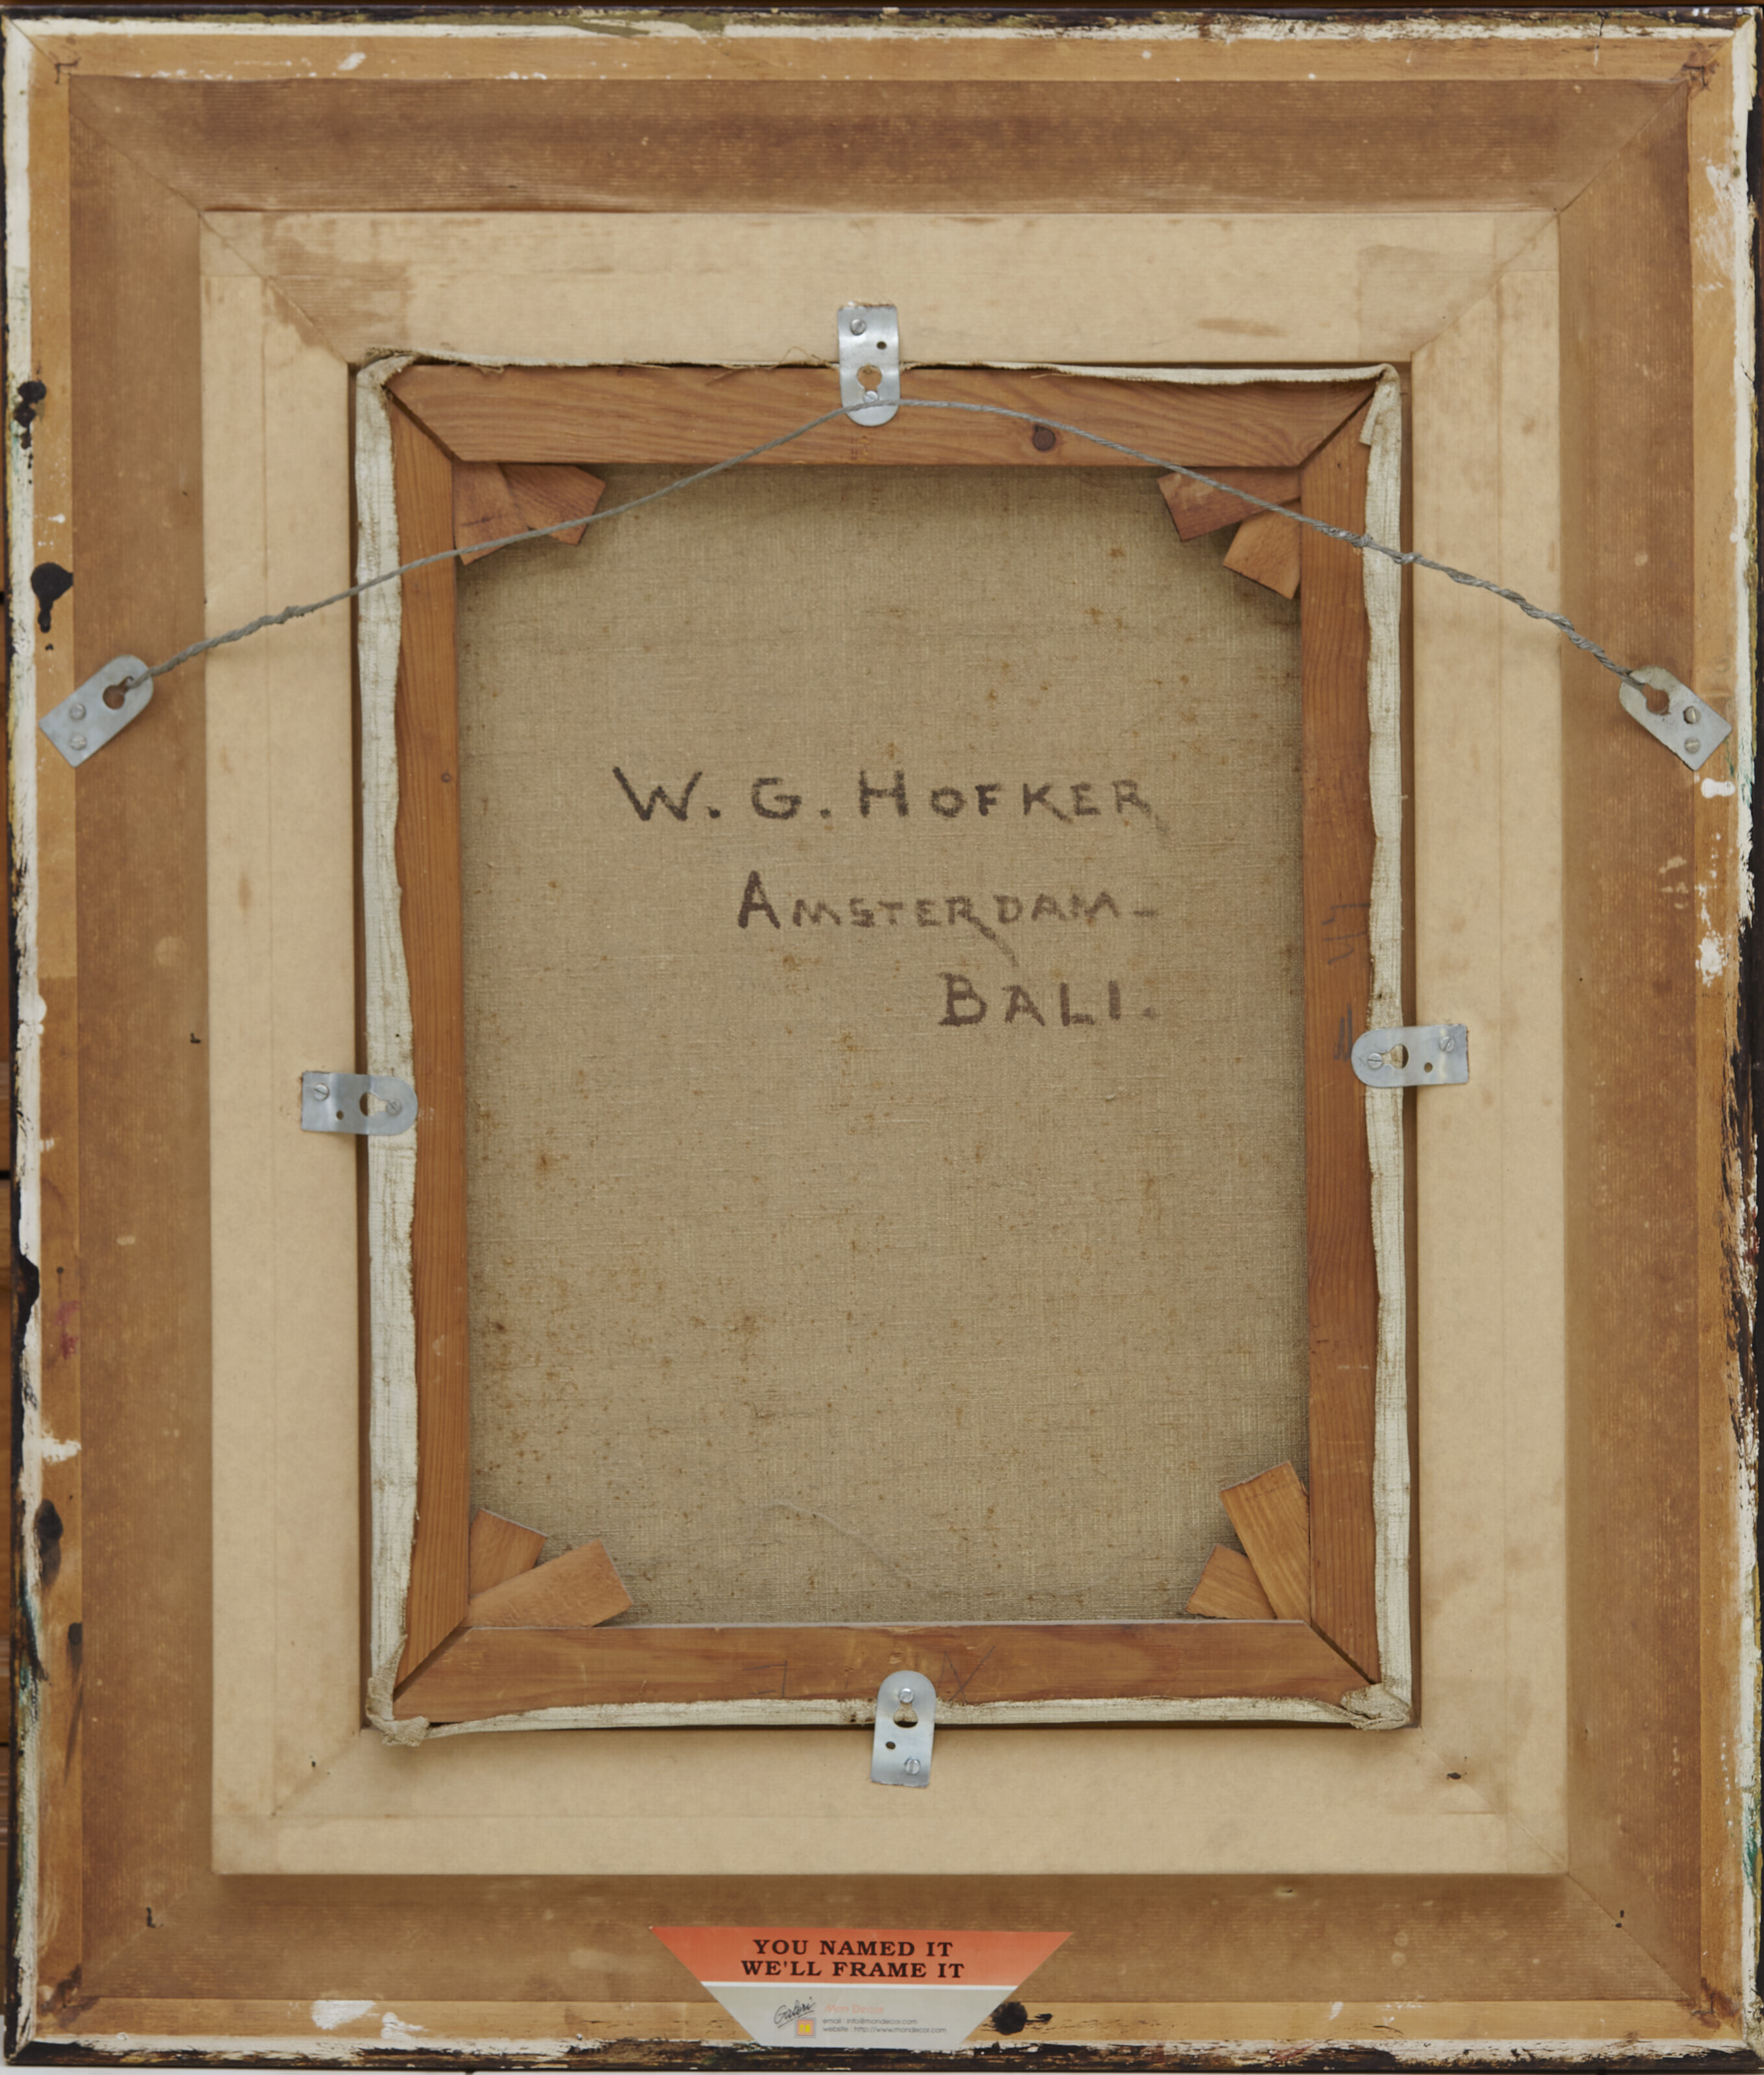 W. G. HOFKER
AMSTERDAM-
BALI.
YOU NAMED IT
WE'LL FRAME IT
Galeri Mon Decor
email : info@mondecor.com
website : http://www.mondecor.com